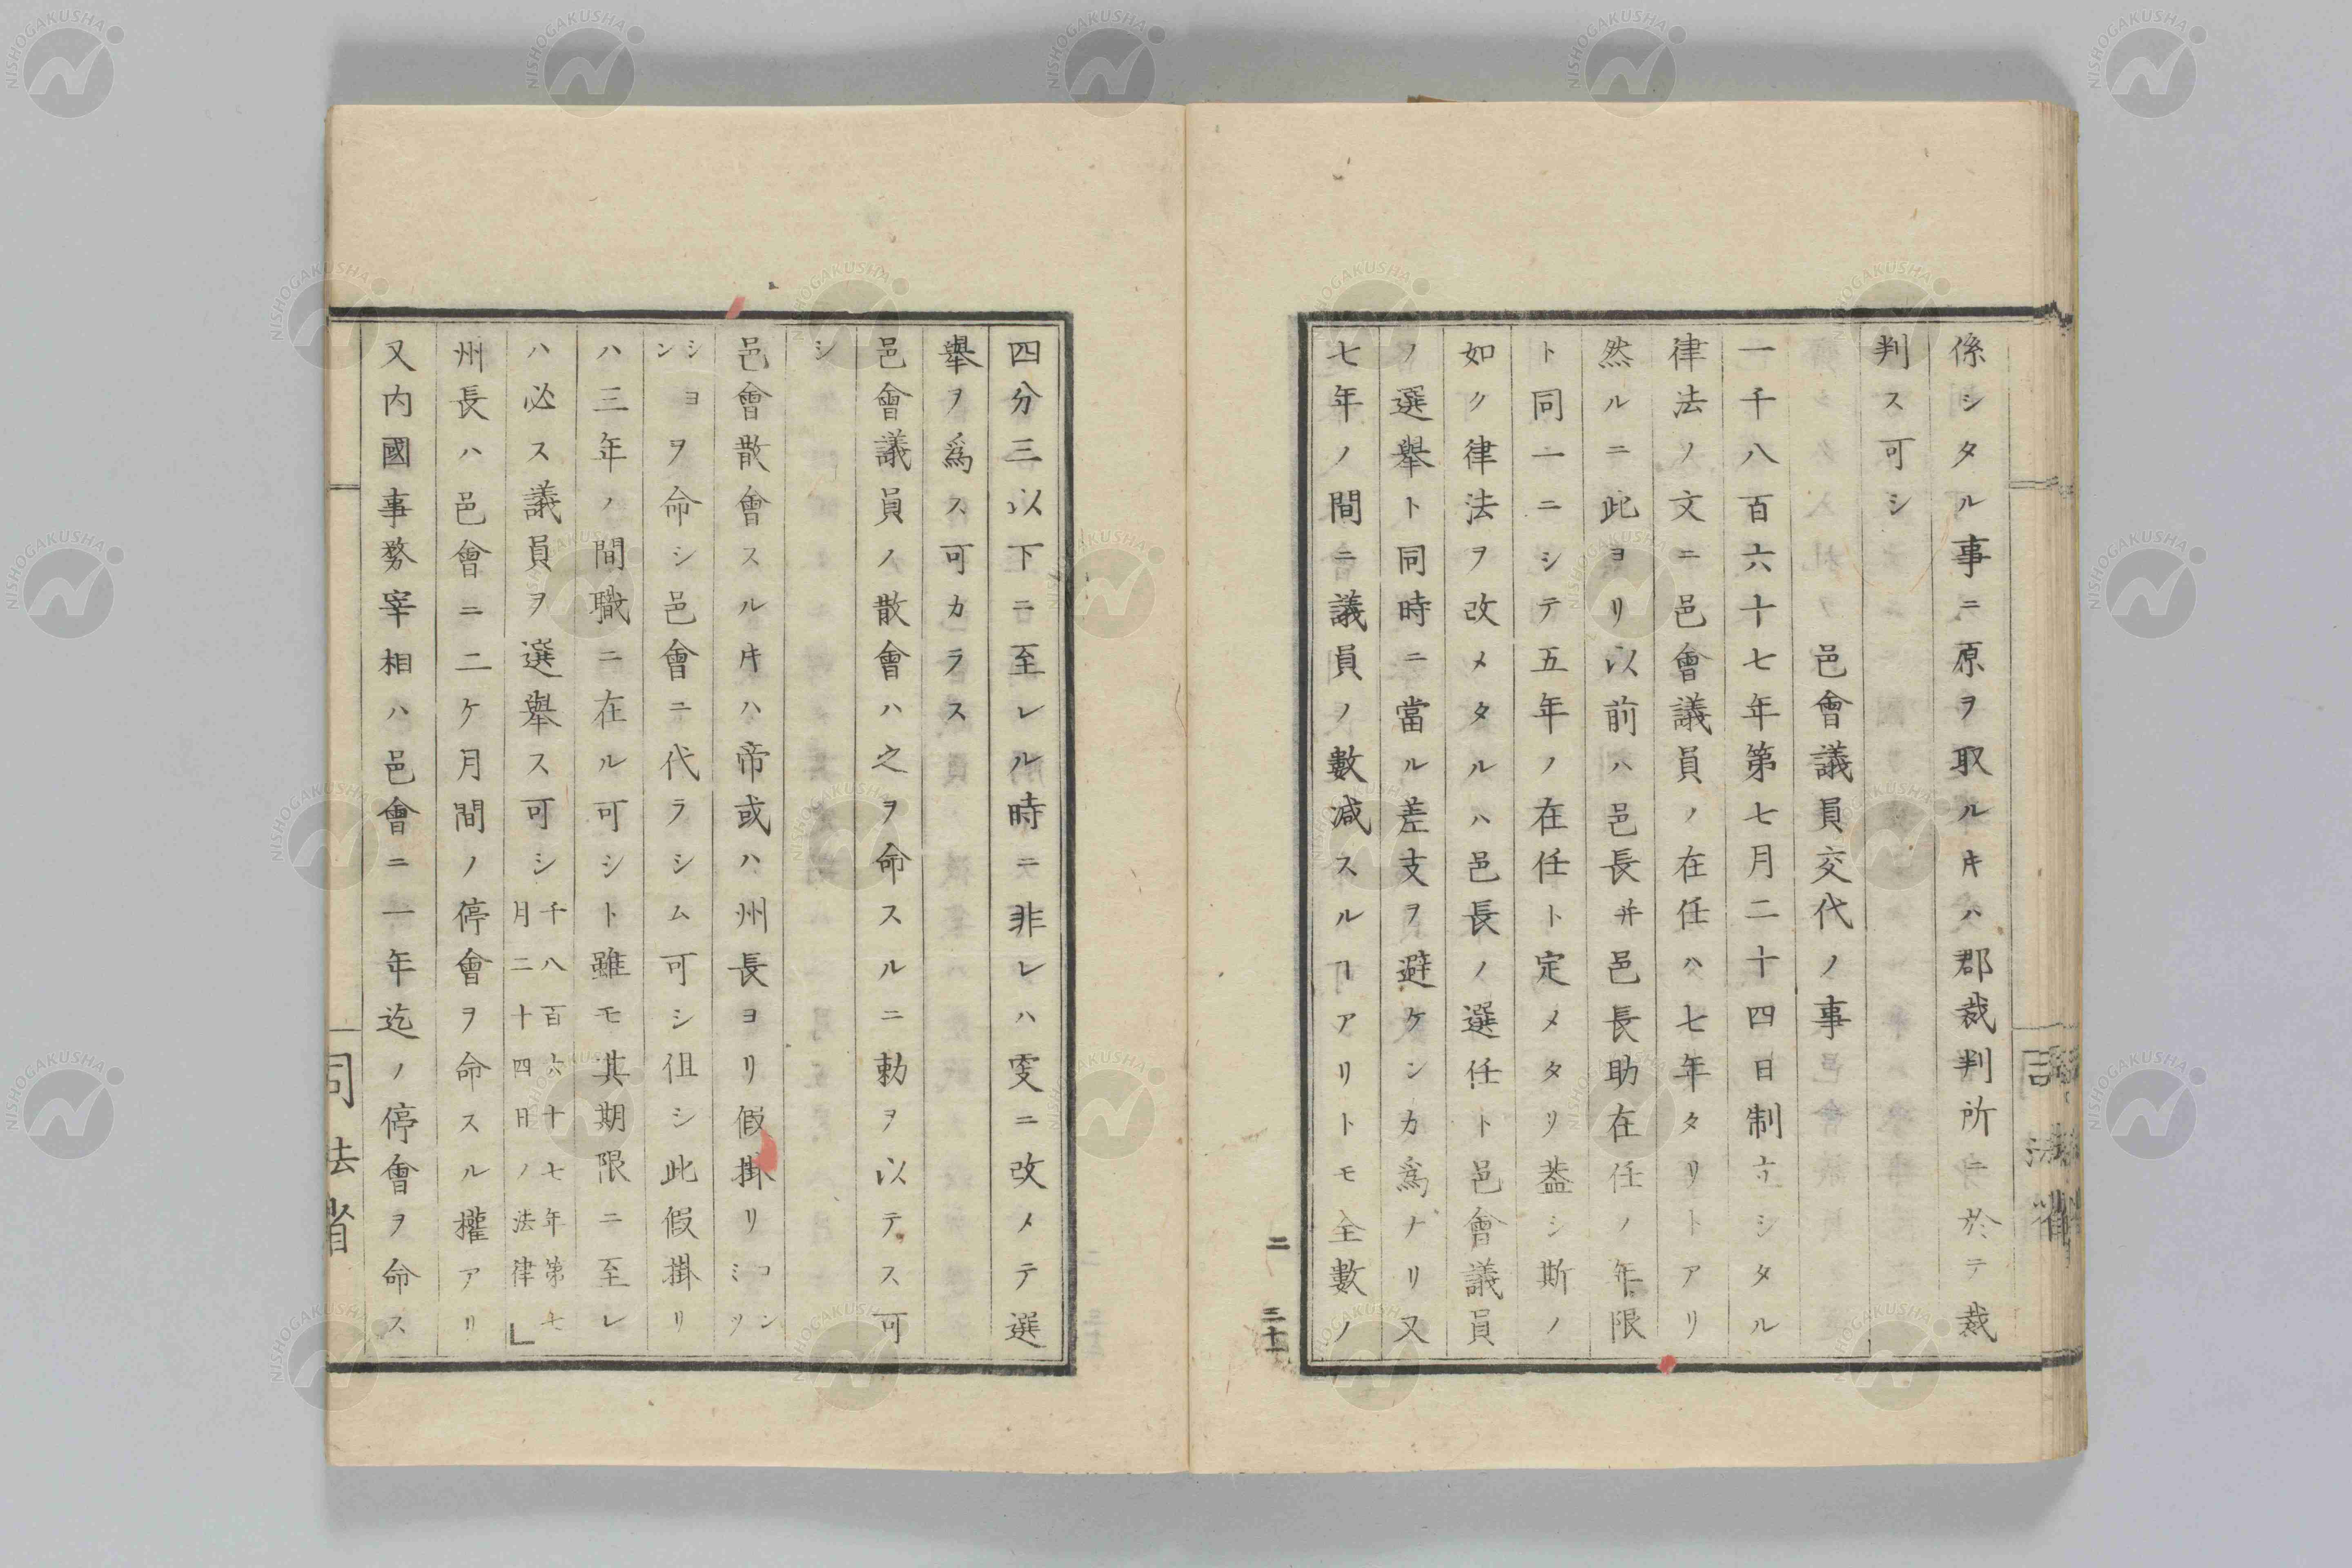 係シタル事ニ原ヲ取ルキハ郡裁判所ニ於テ裁
判ス可シ
邑會議員交代ノ事
一千八百六十七年第七月二十四日制立シタル
律法ノ文ニ邑會議員ノ在任ハ七年タリトアリ
然ルニ此ヨリ以前ハ邑長并邑長助在任ノ年限
ト同一ニシテ五年ノ在任ト定メタリ葢シ斯ノ
如ク律法ヲ改メタルハ邑長ノ選任ト邑會議員
ノ選舉ト同時ニ當ル差支ヲ避ケンカ爲ナリ又
七年ノ間ニ議員ノ數減スルヿアリトモ全數ノ
二 三十
四分三以下ニ至レル時ニ非レハ更ニ改メテ選
舉ヲ爲ス可カラス
邑會議員ノ散會ハ之ヲ命スルニ勅ヲ以テス可
シ
邑會散會スルキハ帝或ハ州長ヨリ假掛リコンミツ
シヨンヲ命シ邑會ニ代ラシム可シ伹シ此假掛リ
ハ三年ノ間職ニ在ル可シト雖モ其期限ニ至レ
ハ必ス議員ヲ選舉ス可シ千八百六十七年第七月二十四日ノ法律」
州長ハ邑會ニ二ケ月間ノ停會ヲ命スル權アリ
又内國事務宰相ハ邑會ニ一年迄ノ停會ヲ命ス
司法省
NISHOGAKUSHA